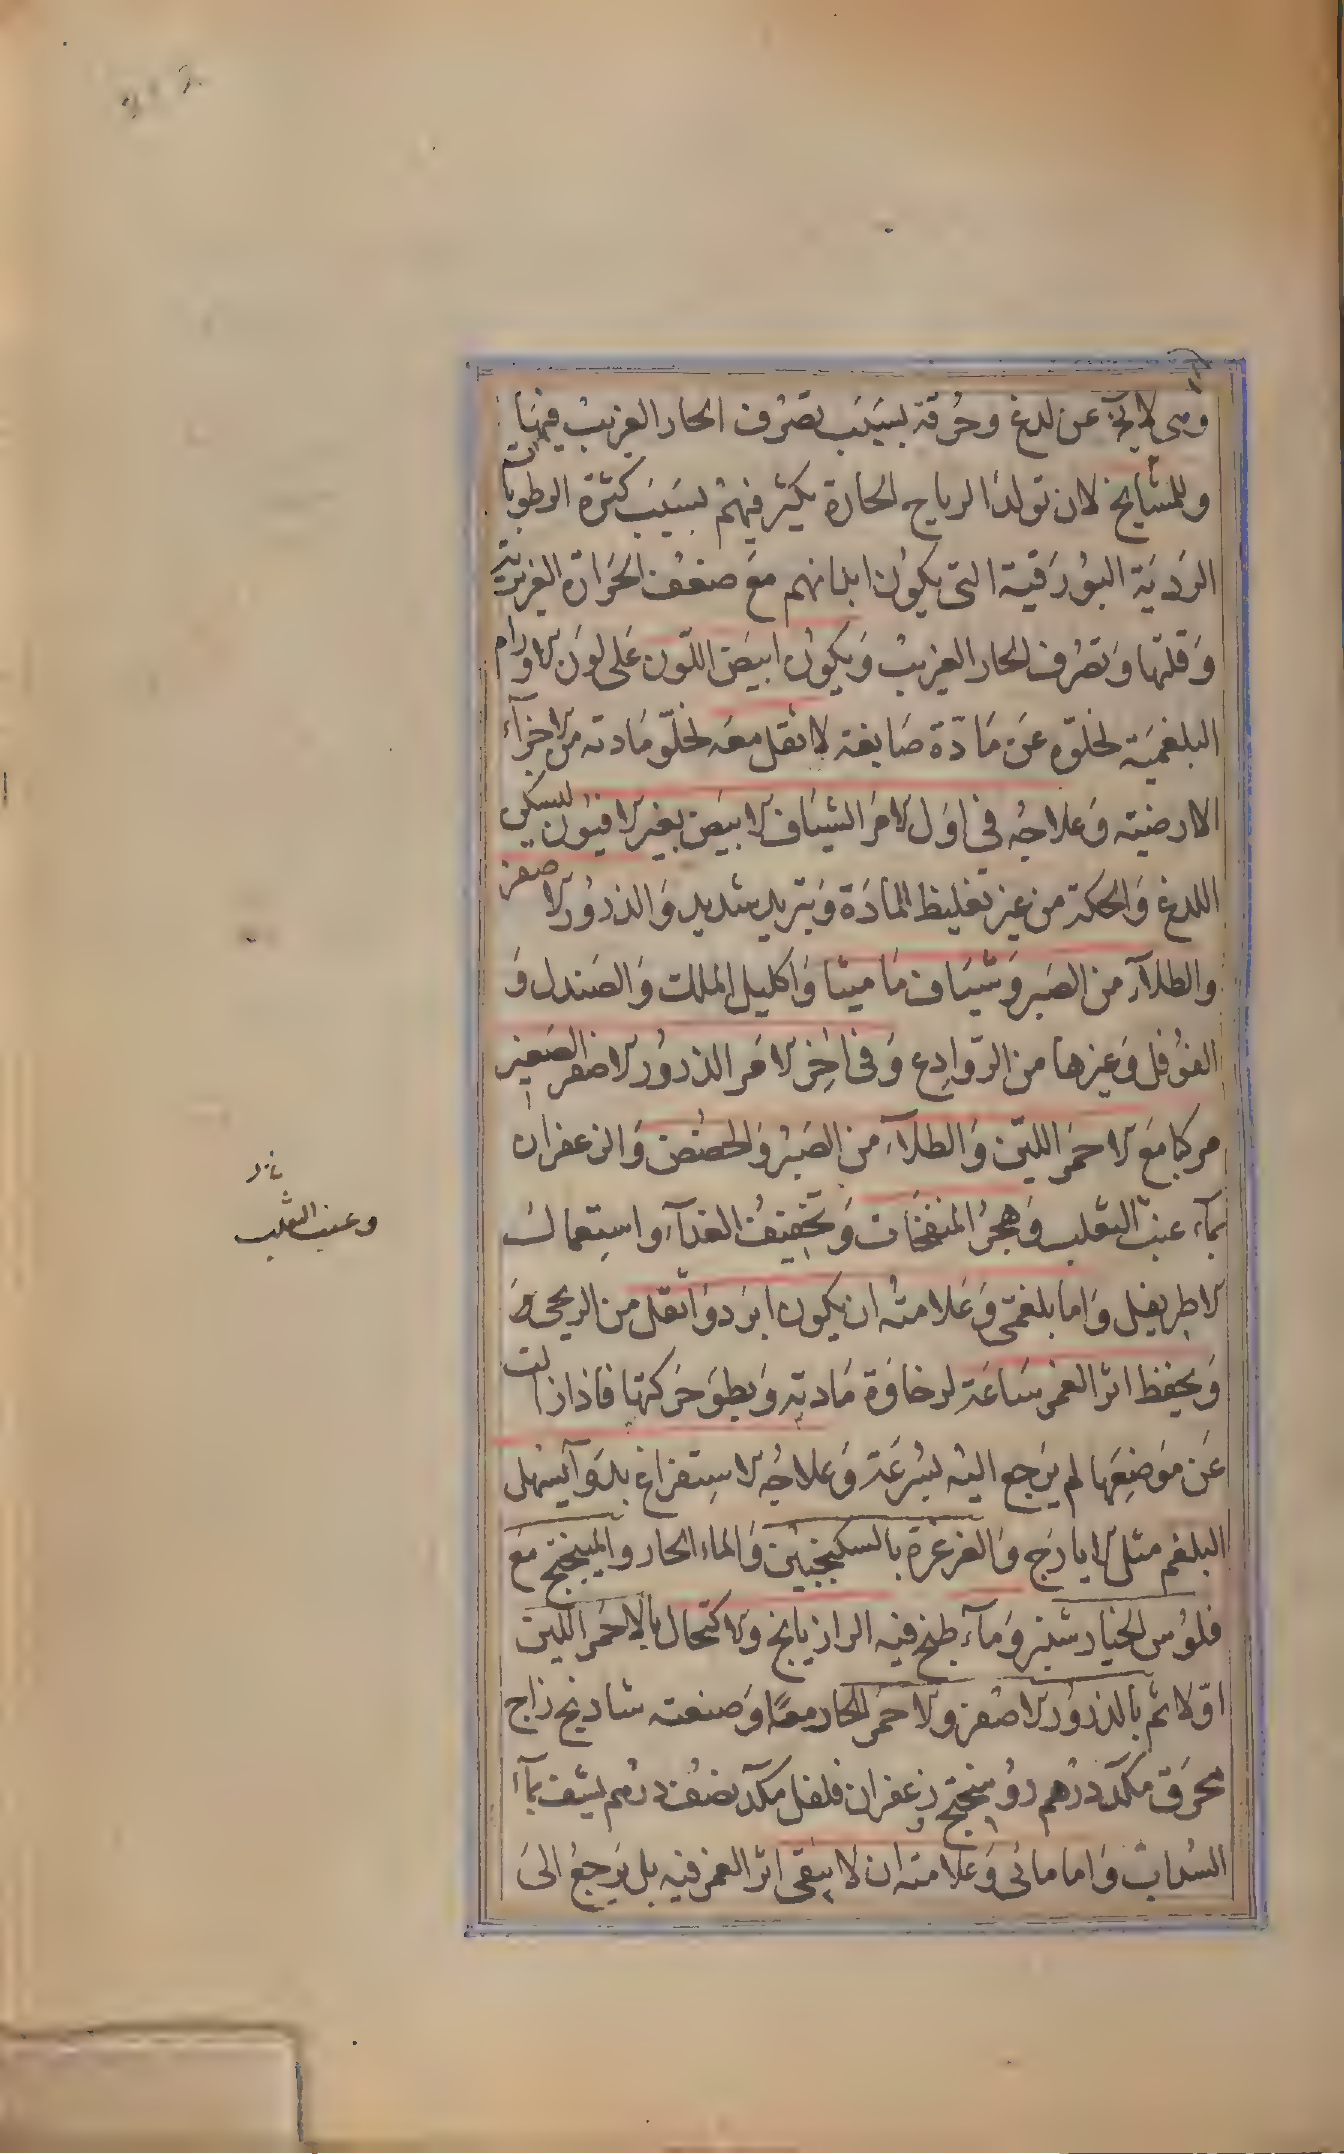 وهى لا يخ عن لدغ وحُرقة بسَبَب تصَرُف الحار الغريبُ فيهَا
وللمشايخ لان تولد الرياح الحارة يكثر فيهُم بسَبَب كثرة الرطوبات
الرَديَة البُورَقية التى يكوُن ابدانهم مَع ضعف الحَرارة الغريزية
وَقلتها وَتصَرُف الحار الغريبُ وَيكوُن ابيَض اللّون عَلى لوَن الاورام
البلغميَة لخلوّه عَن مَادّة صَابغة لا ثقل معَه لخلوّ مَادته من الاجزآء
الارضيّة وَعلاجُه فى اوَل الامر الشيَاف الابيَض بغير الافيُون ليسكن
اللدغ وَالحكة من غير تغليظ المادَة وَتبريد شديد وَالذرُور الاصفر
والطلآء من الصَبر وَشيَاف مَاميثا وَاكليل الملك وَالصَندل وَ
الفوُفل وَغيرها من الرّوادِع وَفى اٰخِر الامَر الذرُور الاصفر الصَغير
مركبا مَع الاحمَر الليّن وَالطلآء من الصَبرُ وَالحضُض وَالزعفران
بمآء عنبُ الثعلب وَهجرُ المنفخَات وَتخفيفُ الغذآء واستِعمال
الاطريفل وَاما بلغمّى وَعَلامتُه ان يكون ابرَد وَاثقل من الريحى
وَيحفظ اثر الغمز سَاعَة لرخاوَة مَادته وَبطوَ حَركتها فاذا زالت
عَن مَوضِعَها لم يَرجع اليُه بسُرعَة وَعلاجُه الاستِفراغ بدَوآء يسُهل
البلغم مثل الايارَج وَالغرغرة بالسكنجبين وَالماء الحار والميبختج مَع
فلوُس الخيار شنبر وَمآء طبخ فيه الرازيانج والاكتحال بالاحمَر الليّن
اوّلا ثم بالذرُور الاصفر والاحمَر الحار معًا وَصنعته شادنج زاج
محرَق مكدَ درُهم رُوسختج زعفران فلفل مكدَ نصُف درُهم يشف بمآء
السُداب وَاما مائى وَعَلامته ان لاَ يبَقى اثر الغمز فيه بل يَرجعُ الىَ
وعنب الثعلب